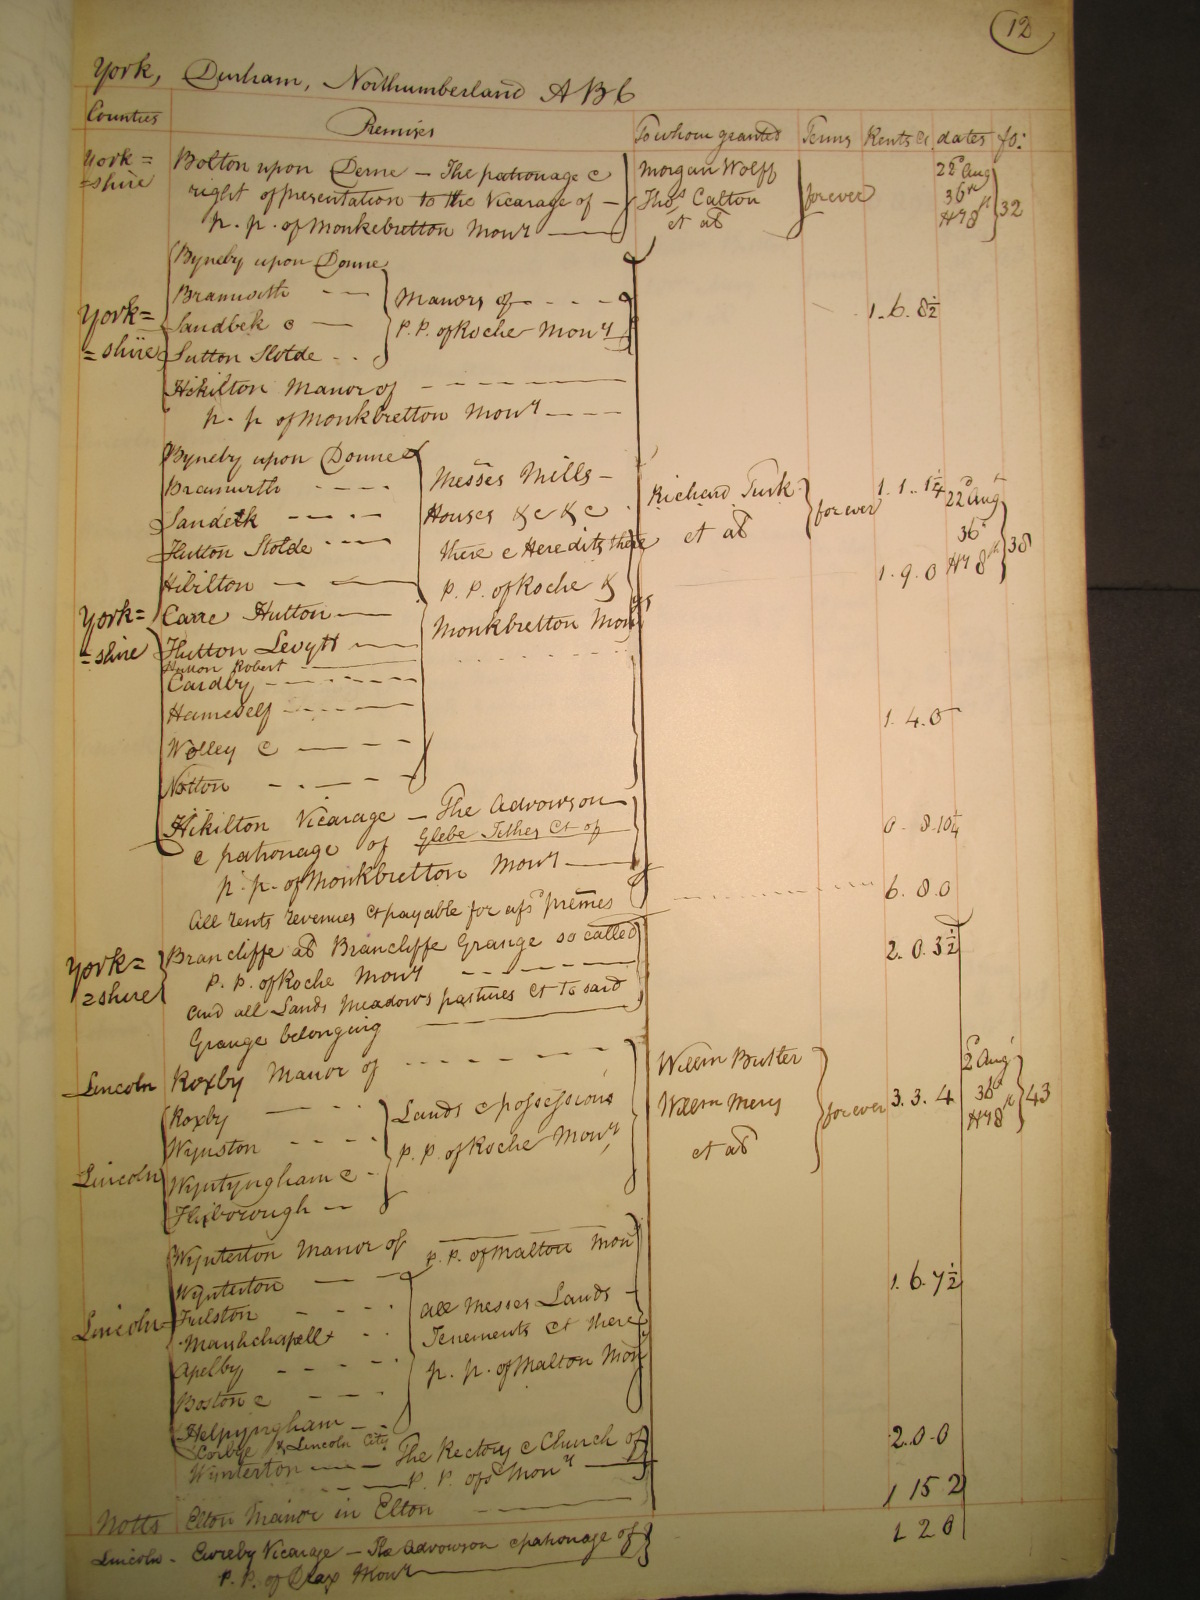 12
York, Durham, Northumberland A B C
Counties Premises To whom granted Terms Rents &c dates fo:
York=
=shire
Bolton upon Derne — The patronage &
right of presentation to the Vicarage of —
p. p. of Monkebretton Mony
Morgan Wolff
Thos Calton
et al
forever
22d Aug
36th
Hy 8th
32
York=
=shire
Byneby upon Donne
Bramwith
Sandbek &
Hutton Slolde
Manors of
P. P. of Roche Mony
1. 6. 8½
Hikilton Manor of
p. p. of Monkbretton Mony
Byneby upon Donne
Bramwith
Sandetk
Hutton Slolde
Hikilton
York=
=shire
Carre Hutton
Hutton Levytt
Hutton Robert
Cardby
Hameself
Wolley &
Notton
Messes Mills —
Houses &c &c
there & Heredits there
P. P. of Roche &
Monkbretton Monys
Richard Turk
et al
forever
1. 1. 1¼
22d Aug
36th
Hy 8th
38
1. 9. 0
1. 4. 0
Hikilton Vicarage — The Advowson
& patronage of Glebe Tithes &c of
p. p. of Monkbretton Mony
0. 8. 10¼
All rents revenues &c payable for afsd premes
6. 8. 0
York=
=shire
Brancliffe als Brancliffe Grange so called
P. P. of Roche Mony
and all Lands Meadows pastures &c to said
Grange belonging
2. 0. 3½
Lincoln Roxby Manor of
Lincoln
Roxby
Wynston
Wyntyngham &
Flixborough
Lands & possessions
P. P. of Roche Mony
Willm Butler
Willm Mery
et al
forever
3. 3. 4
2d Aug
36th
Hy 8th
43
Lincoln
Wynterton Manor of P. P. of Malton Mony
Wynterton
Fulston
Marshchapell
Apelby
Boston &
Helpyngham
Corbye & Lincoln City
All Messes Lands
Tenements &c there
p. p. of Malton Mony
1. 6. 7½
Wynterton — The Rectory & Church of
P. P. of sd Mony
2. 0. 0
Notts Elton Manor in Elton
1 15 2
Lincoln - Eureby Vicarage — The Advowson & patronage of
P. P. of Drax Mony
1 2 0